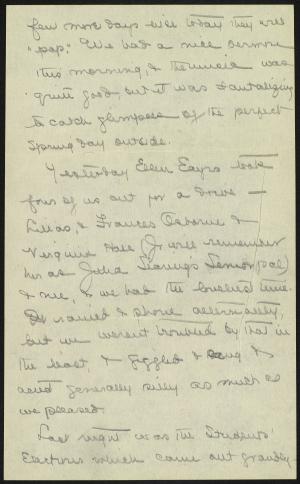 few more days like today they will
"pop." We had a nice sermon
this morning, & the music was
quite good, but it was tantalizing
to catch glimpses of the perfect
spring day outside.
Yesterday Ellen Eayrs took
four of us out for a drive —
Lilias, & Frances Osborne &
Virginia Hale (You will remember
her as Julia Slaring's Senior pal)
& me, & we had the loveliest time.
It rained & shone alternately,
but we weren't troubled by that in
the least, & giggled & sang &
acted generally silly as much as
we pleased.
Last night was the Students'
Elections which came out grandly